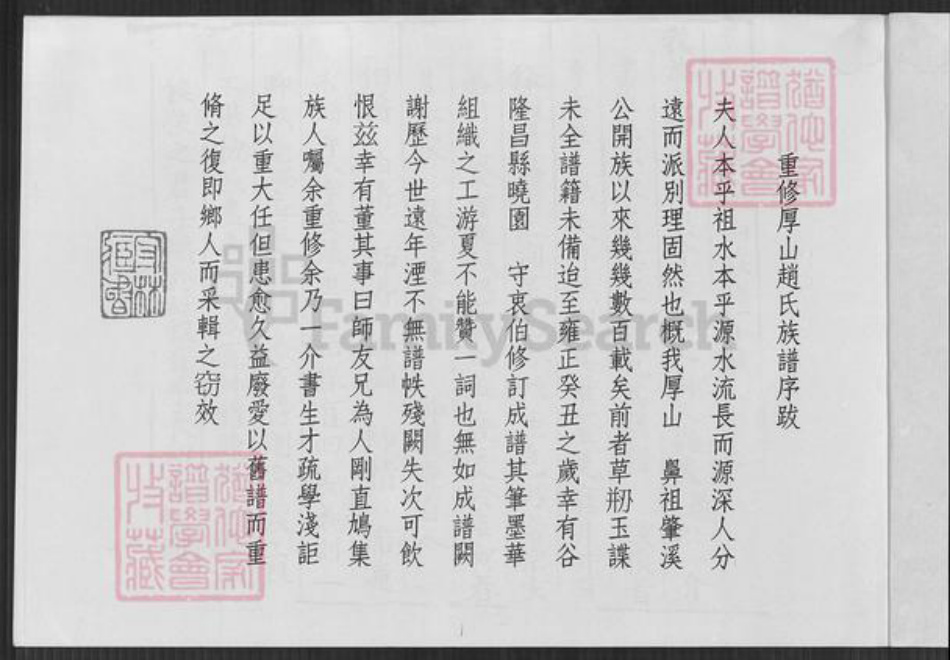 重修厚山趙氏族譜序跋
夫人本乎祖水本乎源水流長而源深人分
遠而派別理固然也概我厚山 鼻祖肇溪
公開族以來幾幾數百載矣前者草刱玉諜
未全譜籍未備迨至雍正癸丑之歲幸有谷
隆昌縣曉園 守衷伯修訂成譜其筆墨華
組織之工游夏不能贊一詞也無如成譜闕
謝歷今世遠年湮不無譜帙殘闕失次可飲
恨玆幸有董其事曰師友兄為人剛直鳩集
族人囑余重修余乃一介書生才疏學淺詎
足以重大任但患愈久益廢愛以舊譜而重
脩之復即鄉人而采輯之窃效
FamilySearch